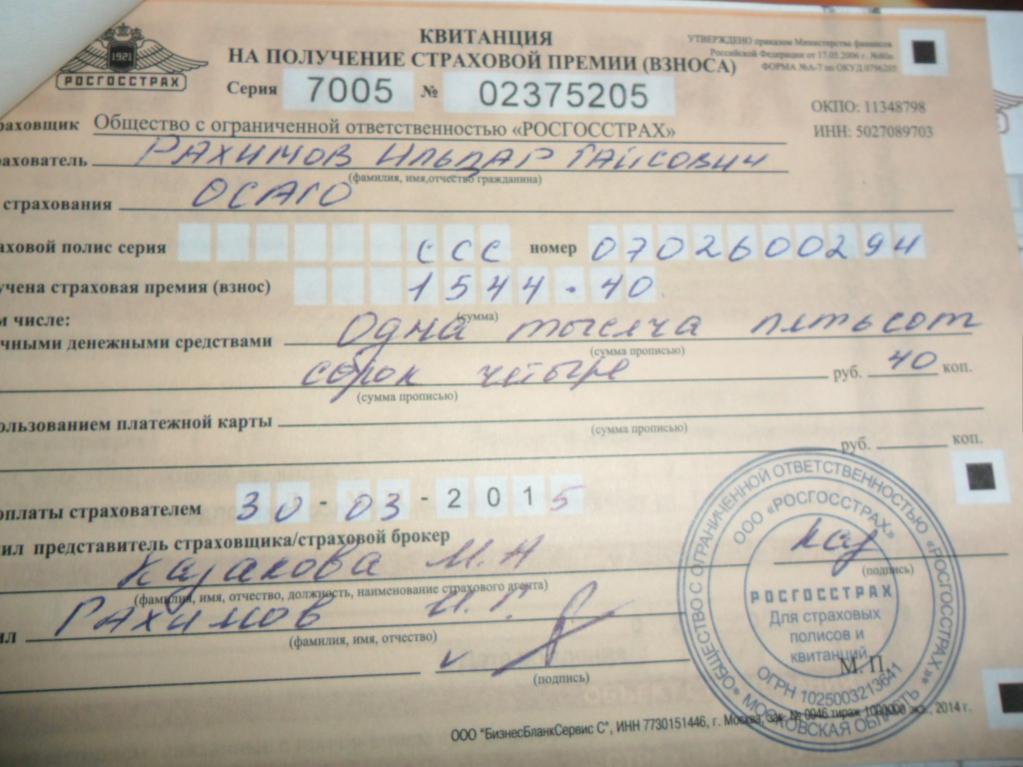 КВИТАНЦИЯ
НА ПОЛУЧЕНИЕ СТРАХОВОЙ ПРЕМИИ (ВЗНОСА)
УТВЕРЖДЕНО приказом Министерства финансов
Российской Федерации от 17.05.2006 г. №80н
ФОРМА №А-7 по ОКУД 0796205
1921
РОСГОССТРАХ
Серия 7005 № 02375205
ОКПО: 11348798
ИНН: 5027089703
раховщик Общество с ограниченной ответственностью «РОСГОССТРАХ»
рахователь Рахимов Ильдар Гайсович
(фамилия, имя,отчество гражданина)
страхования ОСАГО
аховой полис серия ССС номер 0702600294
учена страховая премия (взнос) 1544.40
(сумма)
м числе:
чными денежными средствами Одна тысяча пятьсот
(сумма прописью)
сорок четыре руб. 40 коп.
(сумма прописью)
ользованием платежной карты
(сумма прописью)
руб. коп.
оплаты страхователем 30-03-2015
ил представитель страховщика/страховой брокер
Казакова М.А
(фамилия, имя, отчество, должность, наименование страхового агента)
Каз
(подпись)
ил Рахимов И.Г.
(фамилия, имя, отчество)
(подпись)
М. П.
ОБЩЕСТВО С ОГРАНИЧЕННОЙ ОТВЕТСТВЕННОСТЬЮ «РОСГОССТРАХ»
МОСКОВСКАЯ ОБЛАСТЬ
ООО «РОСГОССТРАХ»
ОГРН 1025003213641
РОСГОССТРАХ
Для страховых
полисов и
квитанций
ООО "БизнесБланкСервис С", ИНН 7730151446, г. Москва, зак. № 0046 тираж 1000000 экз., 2014 г.